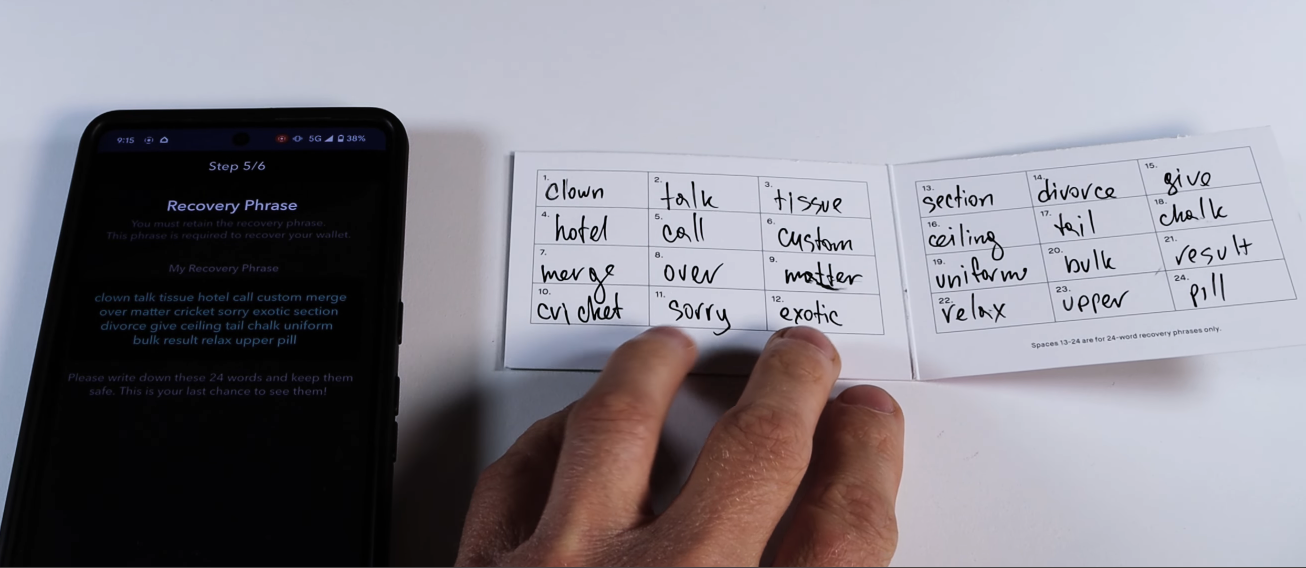 9:15 5G 38%
Step 5/6
Recovery Phrase
You must retain the recovery phrase.
This phrase is required to recover your wallet.
My Recovery Phrase
clown talk tissue hotel call custom merge
over matter cricket sorry exotic section
divorce give ceiling tail chalk uniform
bulk result relax upper pill
Please write down these 24 words and keep them
safe. This is your last chance to see them!
1. clown 2. talk 3. tissue
4. hotel 5. call 6. custom
7. merge 8. over 9. matter
10. cricket 11. sorry 12. exotic
13. section 14. divorce 15. give
16. ceiling 17. tail 18. chalk
19. uniform 20. bulk 21. result
22. relax 23. upper 24. pill
Spaces 13-24 are for 24-word recovery phrases only.